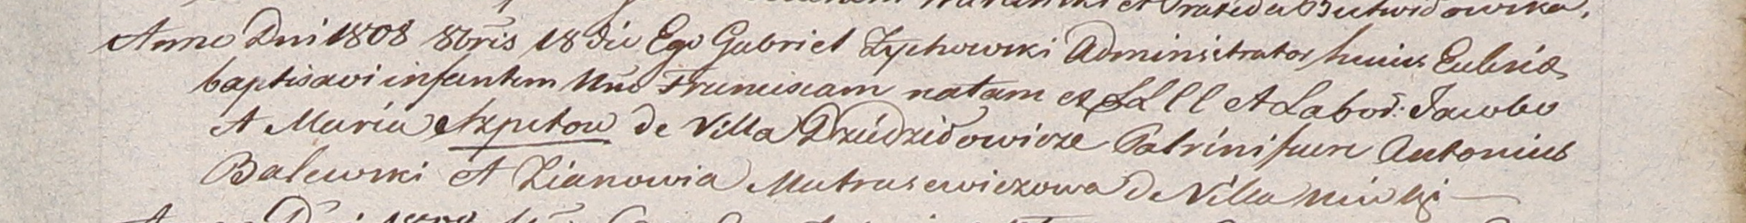 et Praxeda Butwidowska.
Anno Dni 1808 8bris 18 die Ego Gabriel Zychowski Adminsitrator huius Eccliæ
baptisavi infantem Nne Franciscam natam ex LLll et Labor. Jacobo
et Maria Szpetow de Villa Dziedzidowicze Patrini fuere Antonius
Balewski et Zianowia Matrasewiczowa de Villa
Anno Dni 1808